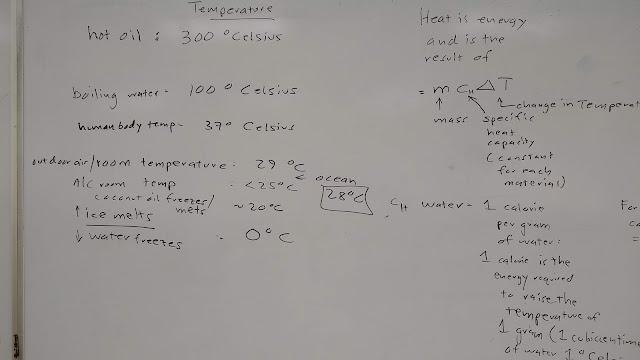 Temperature
hot oil : 300 °Celsius
boiling water - 100 ° Celsius
human body temp - 37° Celsius
outdoor air/room temperature : 29 °C
ocean
28°C
A/C room temp : <25°C
coconut oil freezes/
melts ~20°C
↑ ice melts
↓ water freezes - 0°C
Heat is energy
and is the
result of
= m cH △ T
change in Temperat
mass specific
heat
capacity
(constant
for each
material)
cH water - 1 calorie
per gram
of water:
1 calorie is the
energy required
to raise the
temperature of
1 gram (1 cubic centim
of water 1 °Cel
For
ca
=